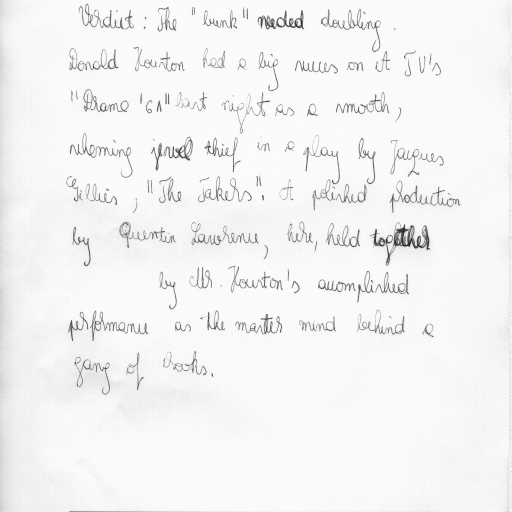 Verdict : The "bunk" needed doubling .
Donald Houston had a big succes on A TV's
"Drama '61" last night as a smooth ,
scheming jewel thief in a play by Jacques
Gillies , "The Takers". A polished production
by Quentin Lawrence, here, held together
by Mr. Houston's accomplished
performance as the master mind behind a
gang of crooks.